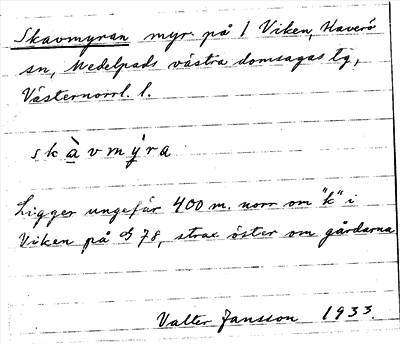 Skavmyran myr på 1 Viken, Haverö
sn, Medelpads västra domsagas tg,
Västernorrl. l.
skàvmýra
Ligger ungefär 400 m. norr om "k" i
Viken på G 78, strax öster om gårdarna
Valter Jansson 1933.